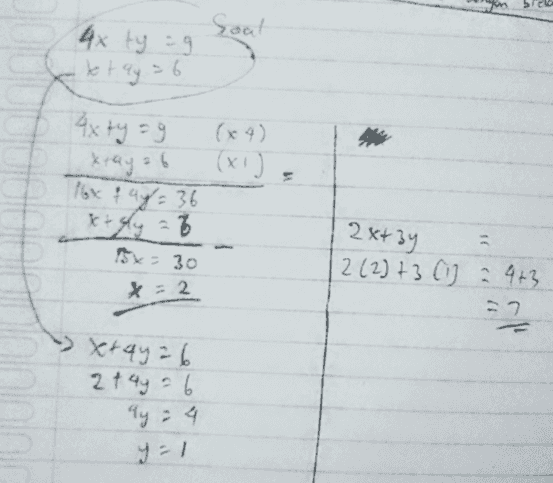 Soal
4x + y = 9
x + 4y = 6
4x + y = 9 (x 4)
x + 4y = 6 (x 1)
=
16x + 4y = 36
x + 4y = 6
-
15x = 30
x = 2
x + 4y = 6
2 + 4y = 6
4y = 4
y = 1
2x + 3y =
2 (2) + 3 (1) = 4 + 3
= 7